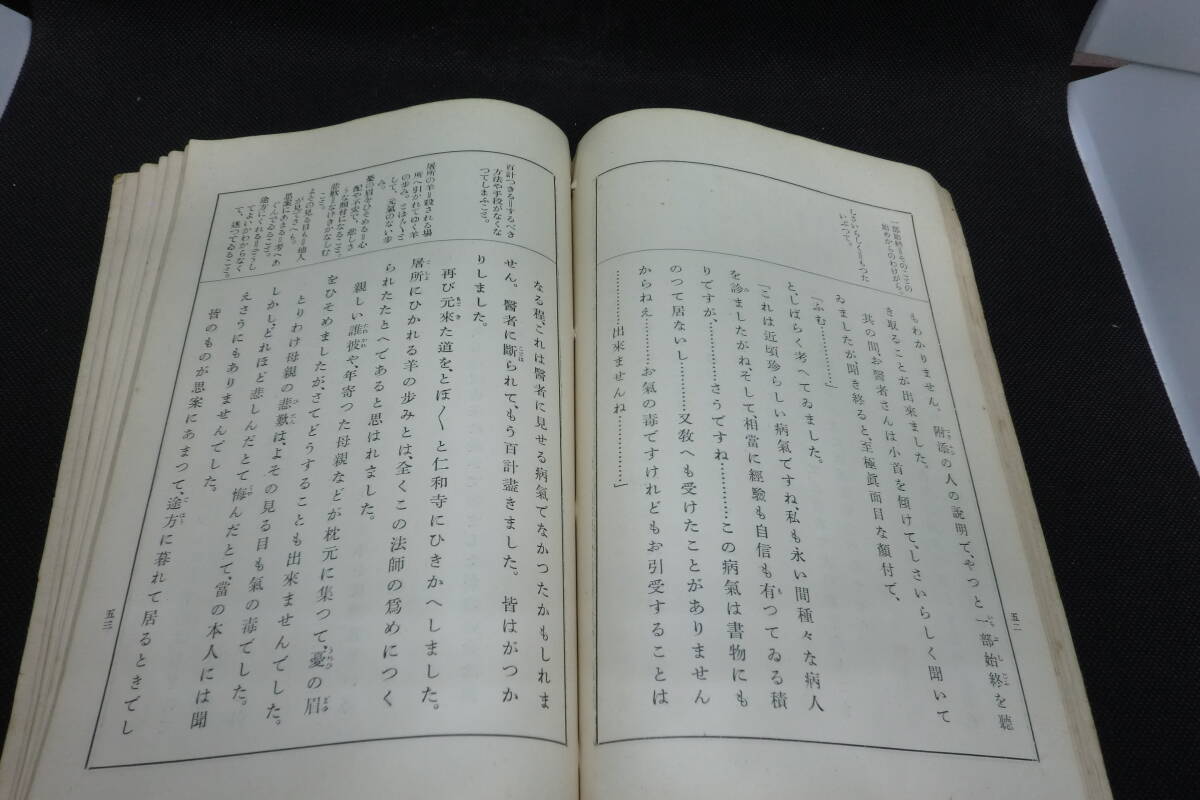 一部始終=そのことの
始めからのわけがら。
しさいらしく=もつた
いぶつて。
もわかりません。附添の人の說明で、やつと一部始終を聽
き取ることが出來ました。
其の間、お醫者さんは小首を傾けて、しさいらしく聞いて
ゐましたが聞き終ると、至極眞面目な顏付で、
「ふむ…………」
とじばらく考へてゐました。
「これは近頃珍らしい病氣ですね、私も永い間種々な病人
を診ましたがね、そして、相當に經驗も自信も有つてゐる積
りですが、…………さうですね…………この病氣は書物にも
のつて居ないし…………又敎へも受けたことがありません
からねえ…………お氣の毒ですけれどもお引受することは
…………出來ませんね…………」
五二
百計つきる=するべき
方法や手段がなくな
つてしまふこと。
屠所の羊=殺される場
所へ引かれてゆく羊
の歩み。とぼ〱と
して、元氣のない歩
み。
憂の眉をひそめる=心
配や不安で、悲しさ
うな顏付になること。
悲歎=なげきかなしむ
こと。
よその見る目も=他人
が見てさへも。
思案にあまる=考へあ
ぐんでゐること。
途方にくれる=どうし
てよいかわからなく
て、迷つてゐること。
なる程、これは醫者に見せる病氣でなかつたかもしれま
せん。醫者に斷られて、もう百計盡きました。皆はがつか
りしました。
再び元來た道を、とぼ〱と仁和寺にひきかへしました。
屠所にひかれる羊の歩みとは、全くこの法師の爲めにつく
られたたとへであると思はれました。
親しい誰彼や、年寄つた母親などが枕元に集つて、憂の眉
をひそめましたが、さてどうすることも出來ませんでした。
とりわけ母親の悲歎は、よその見る目も氣の毒でした。
しかし、どれほど悲しんだとて悔んだとて、當の本人には聞
えさうにもありませんでした。
皆のものが思案にあまつて、途方に暮れて居るときでし
五三